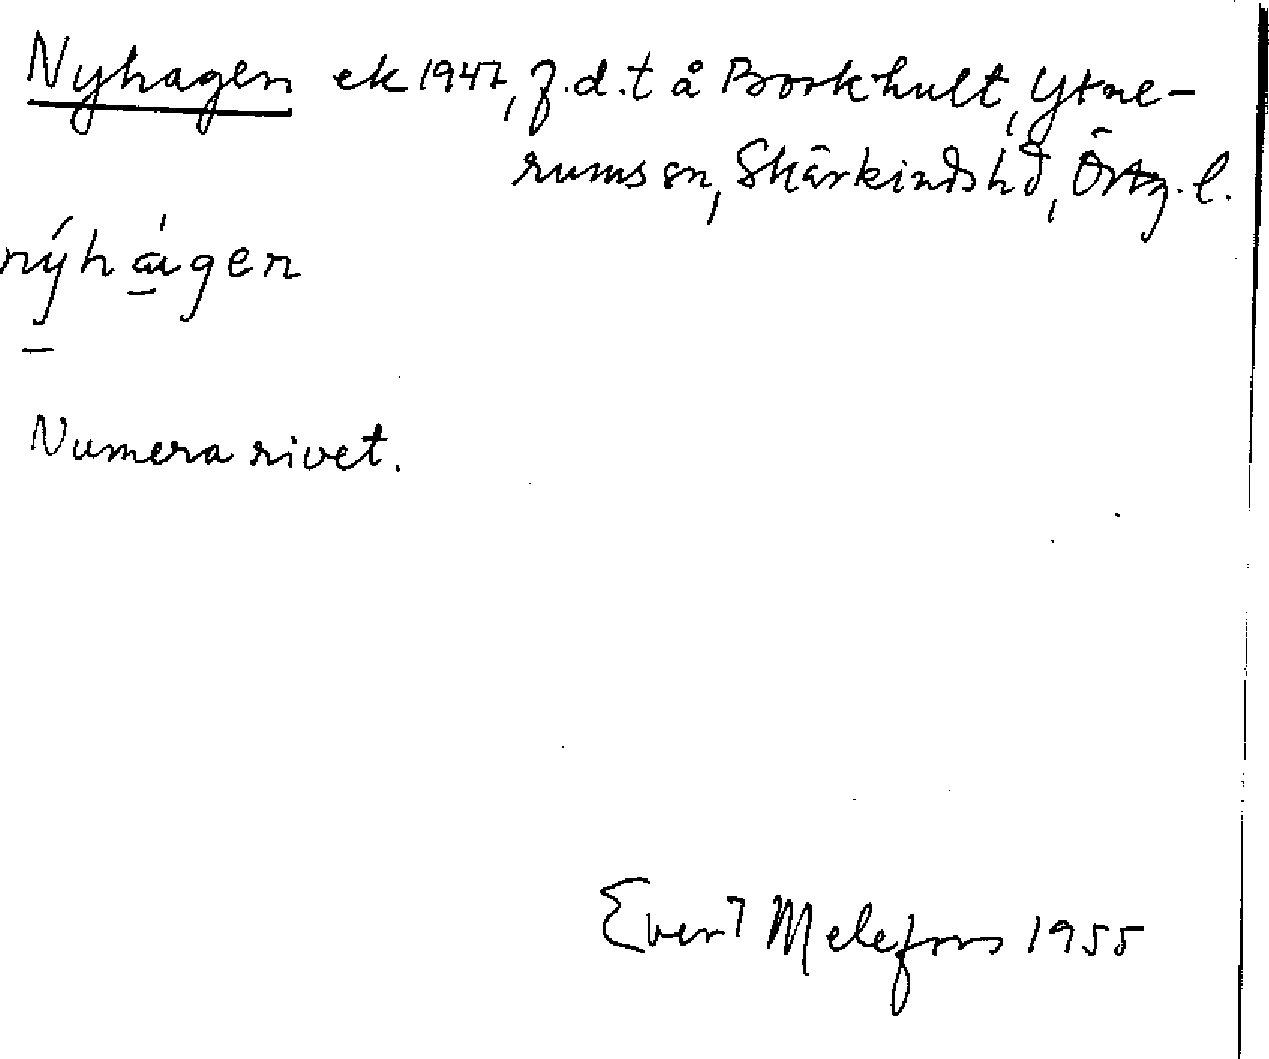 Nyhagen ek 1947, f.d.t å Borkhult, Yxne-
rums sn, Skärkinds hd, Östg.l.
nýhágen
Numera rivet.
Evert Melefors 1955